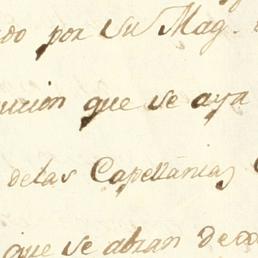 do por su Mag.
ucion que se aya
delas Capellanias
que se abran de